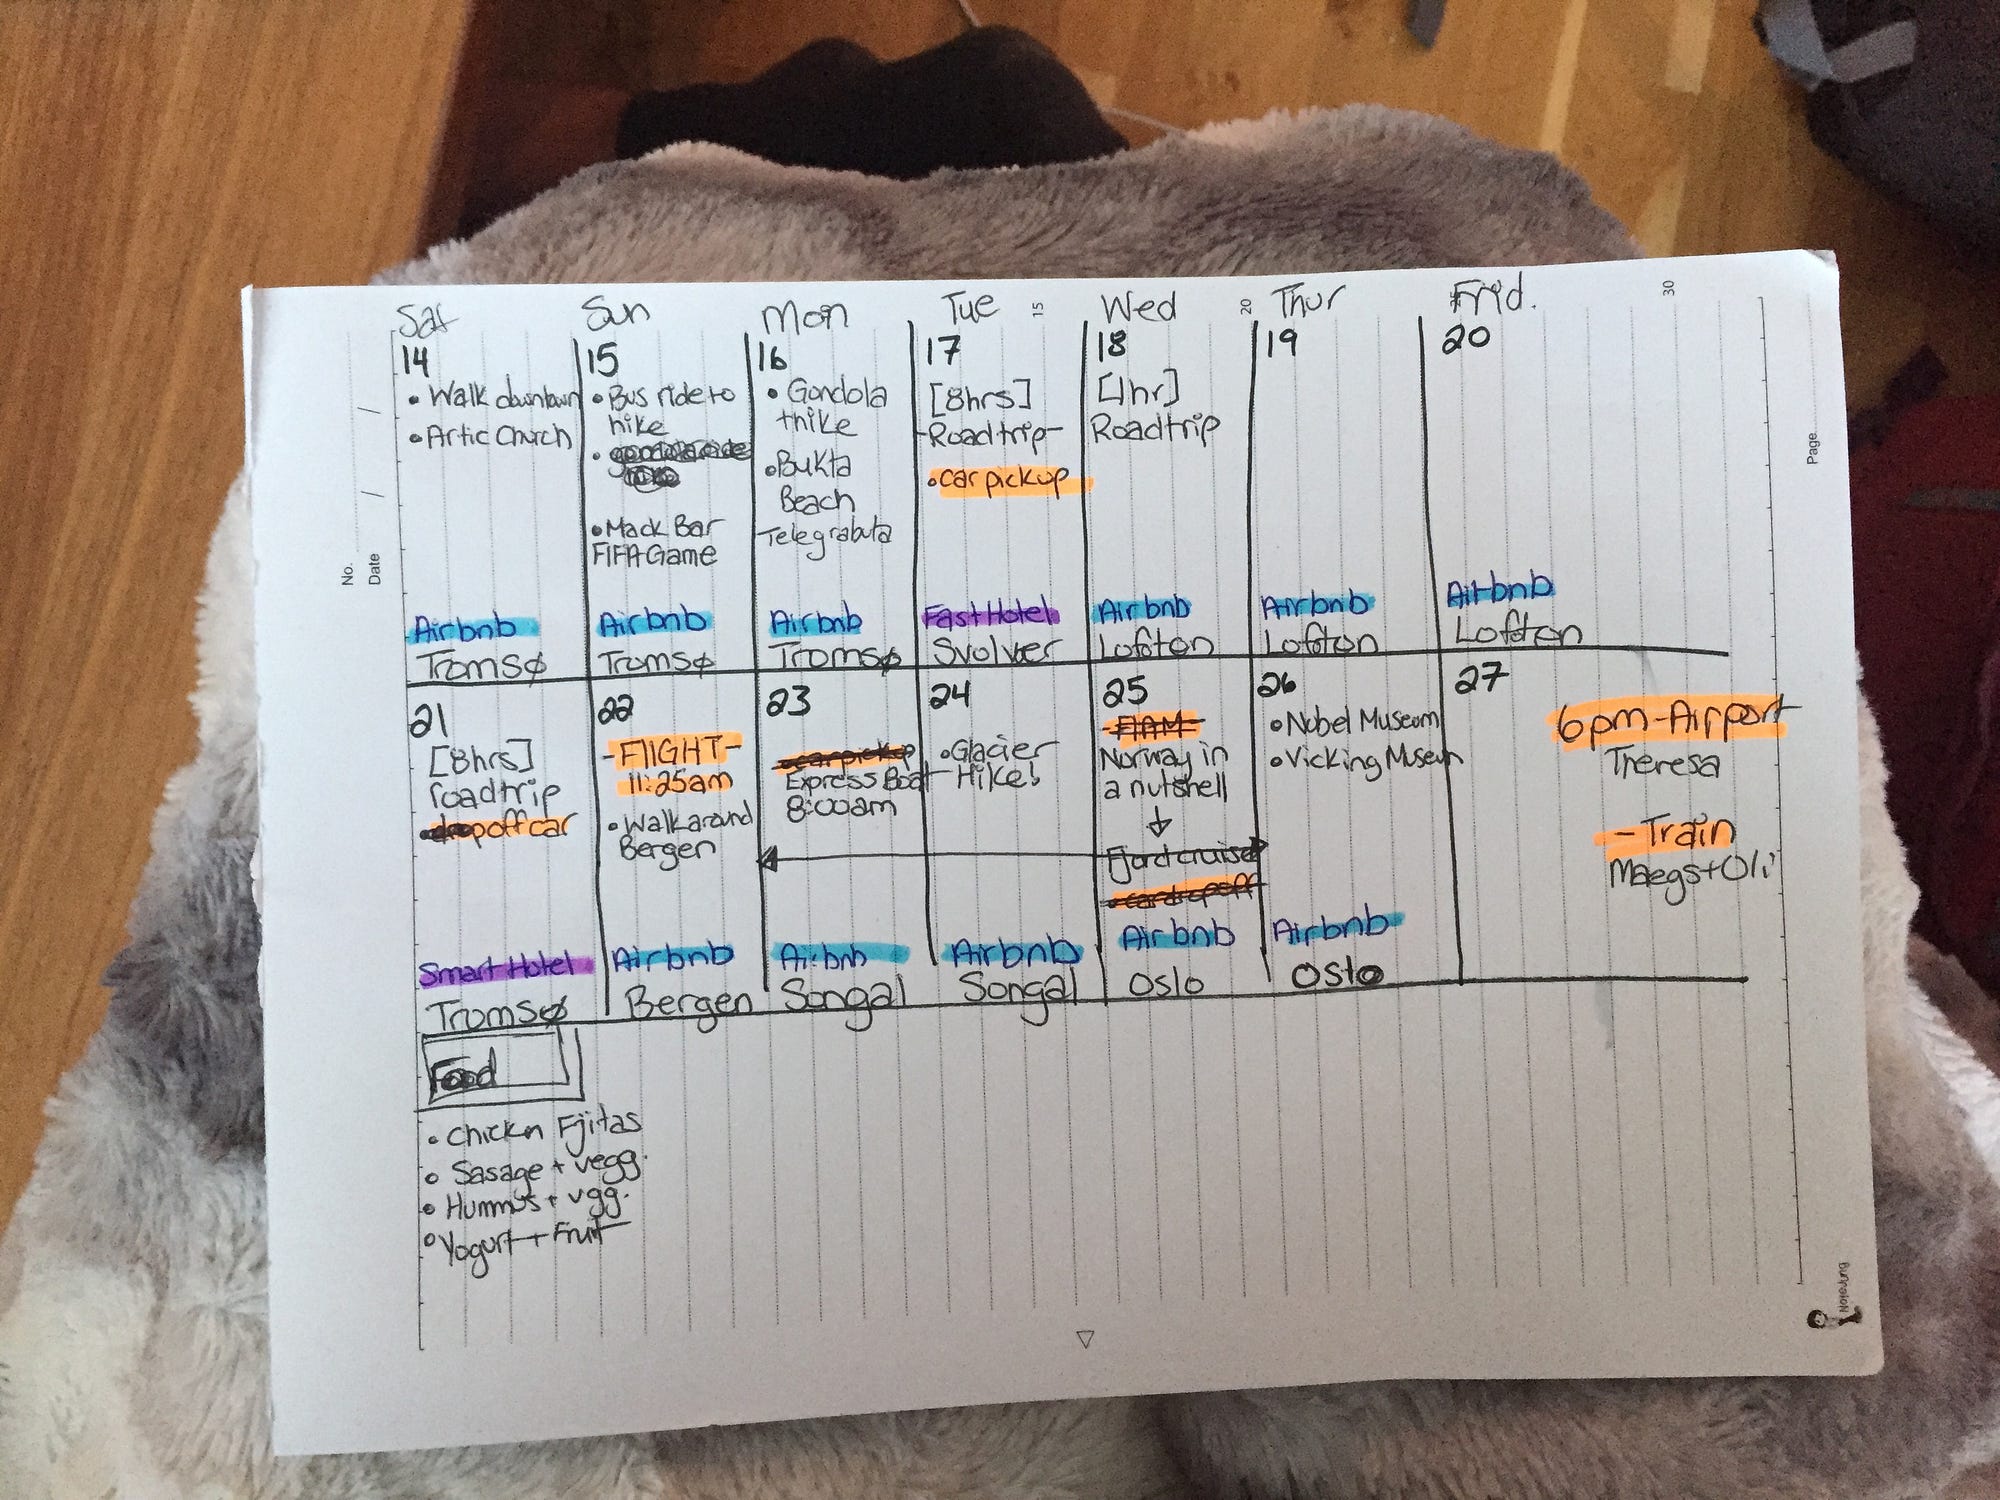 Sat Sun Mon Tue Wed Thur Frid.
15 20 30
No.
Date
Page
14
• Walk downtown
• Artic Church
Airbnb
Tromsø
15
• Bus ride to
hike
• Mack Bar
FIFA Game
Airbnb
Tromsø
16
• Gondola
+hike
• Bukta
Beach
Telegrabuta
Airbnb
Tromsø
17
[8hrs]
-Roadtrip-
• car pickup
Fast Hotel
Svolvær
18
[1hr]
Roadtrip
Airbnb
Lofoton
19
Airbnb
Lofoton
20
Airbnb
Lofoton
21
[8hrs]
roadtrip
• drop off car
Smart Hotel
Tromsø
22
-FlIGHT-
11:25am
• Walk around
Bergen
Airbnb
Bergen
23
• car pickup
Express Boat
8:00am
Airbnb
Songal
24
• Glacier
Hike!
Airbnb
Songal
25
-FlAM-
Norway in
a nutshell
Fjord cruise
• car dropoff
Airbnb
Oslo
26
• Nobel Museum
• Vicking Museum
Airbnb
Oslo
27
6pm-Airport
Theresa
- Train
Maegs+Oli
Food
• Chickn Fjitas
• Sasage + vegg.
• Hummus + vgg.
• Yogurt + Fruit